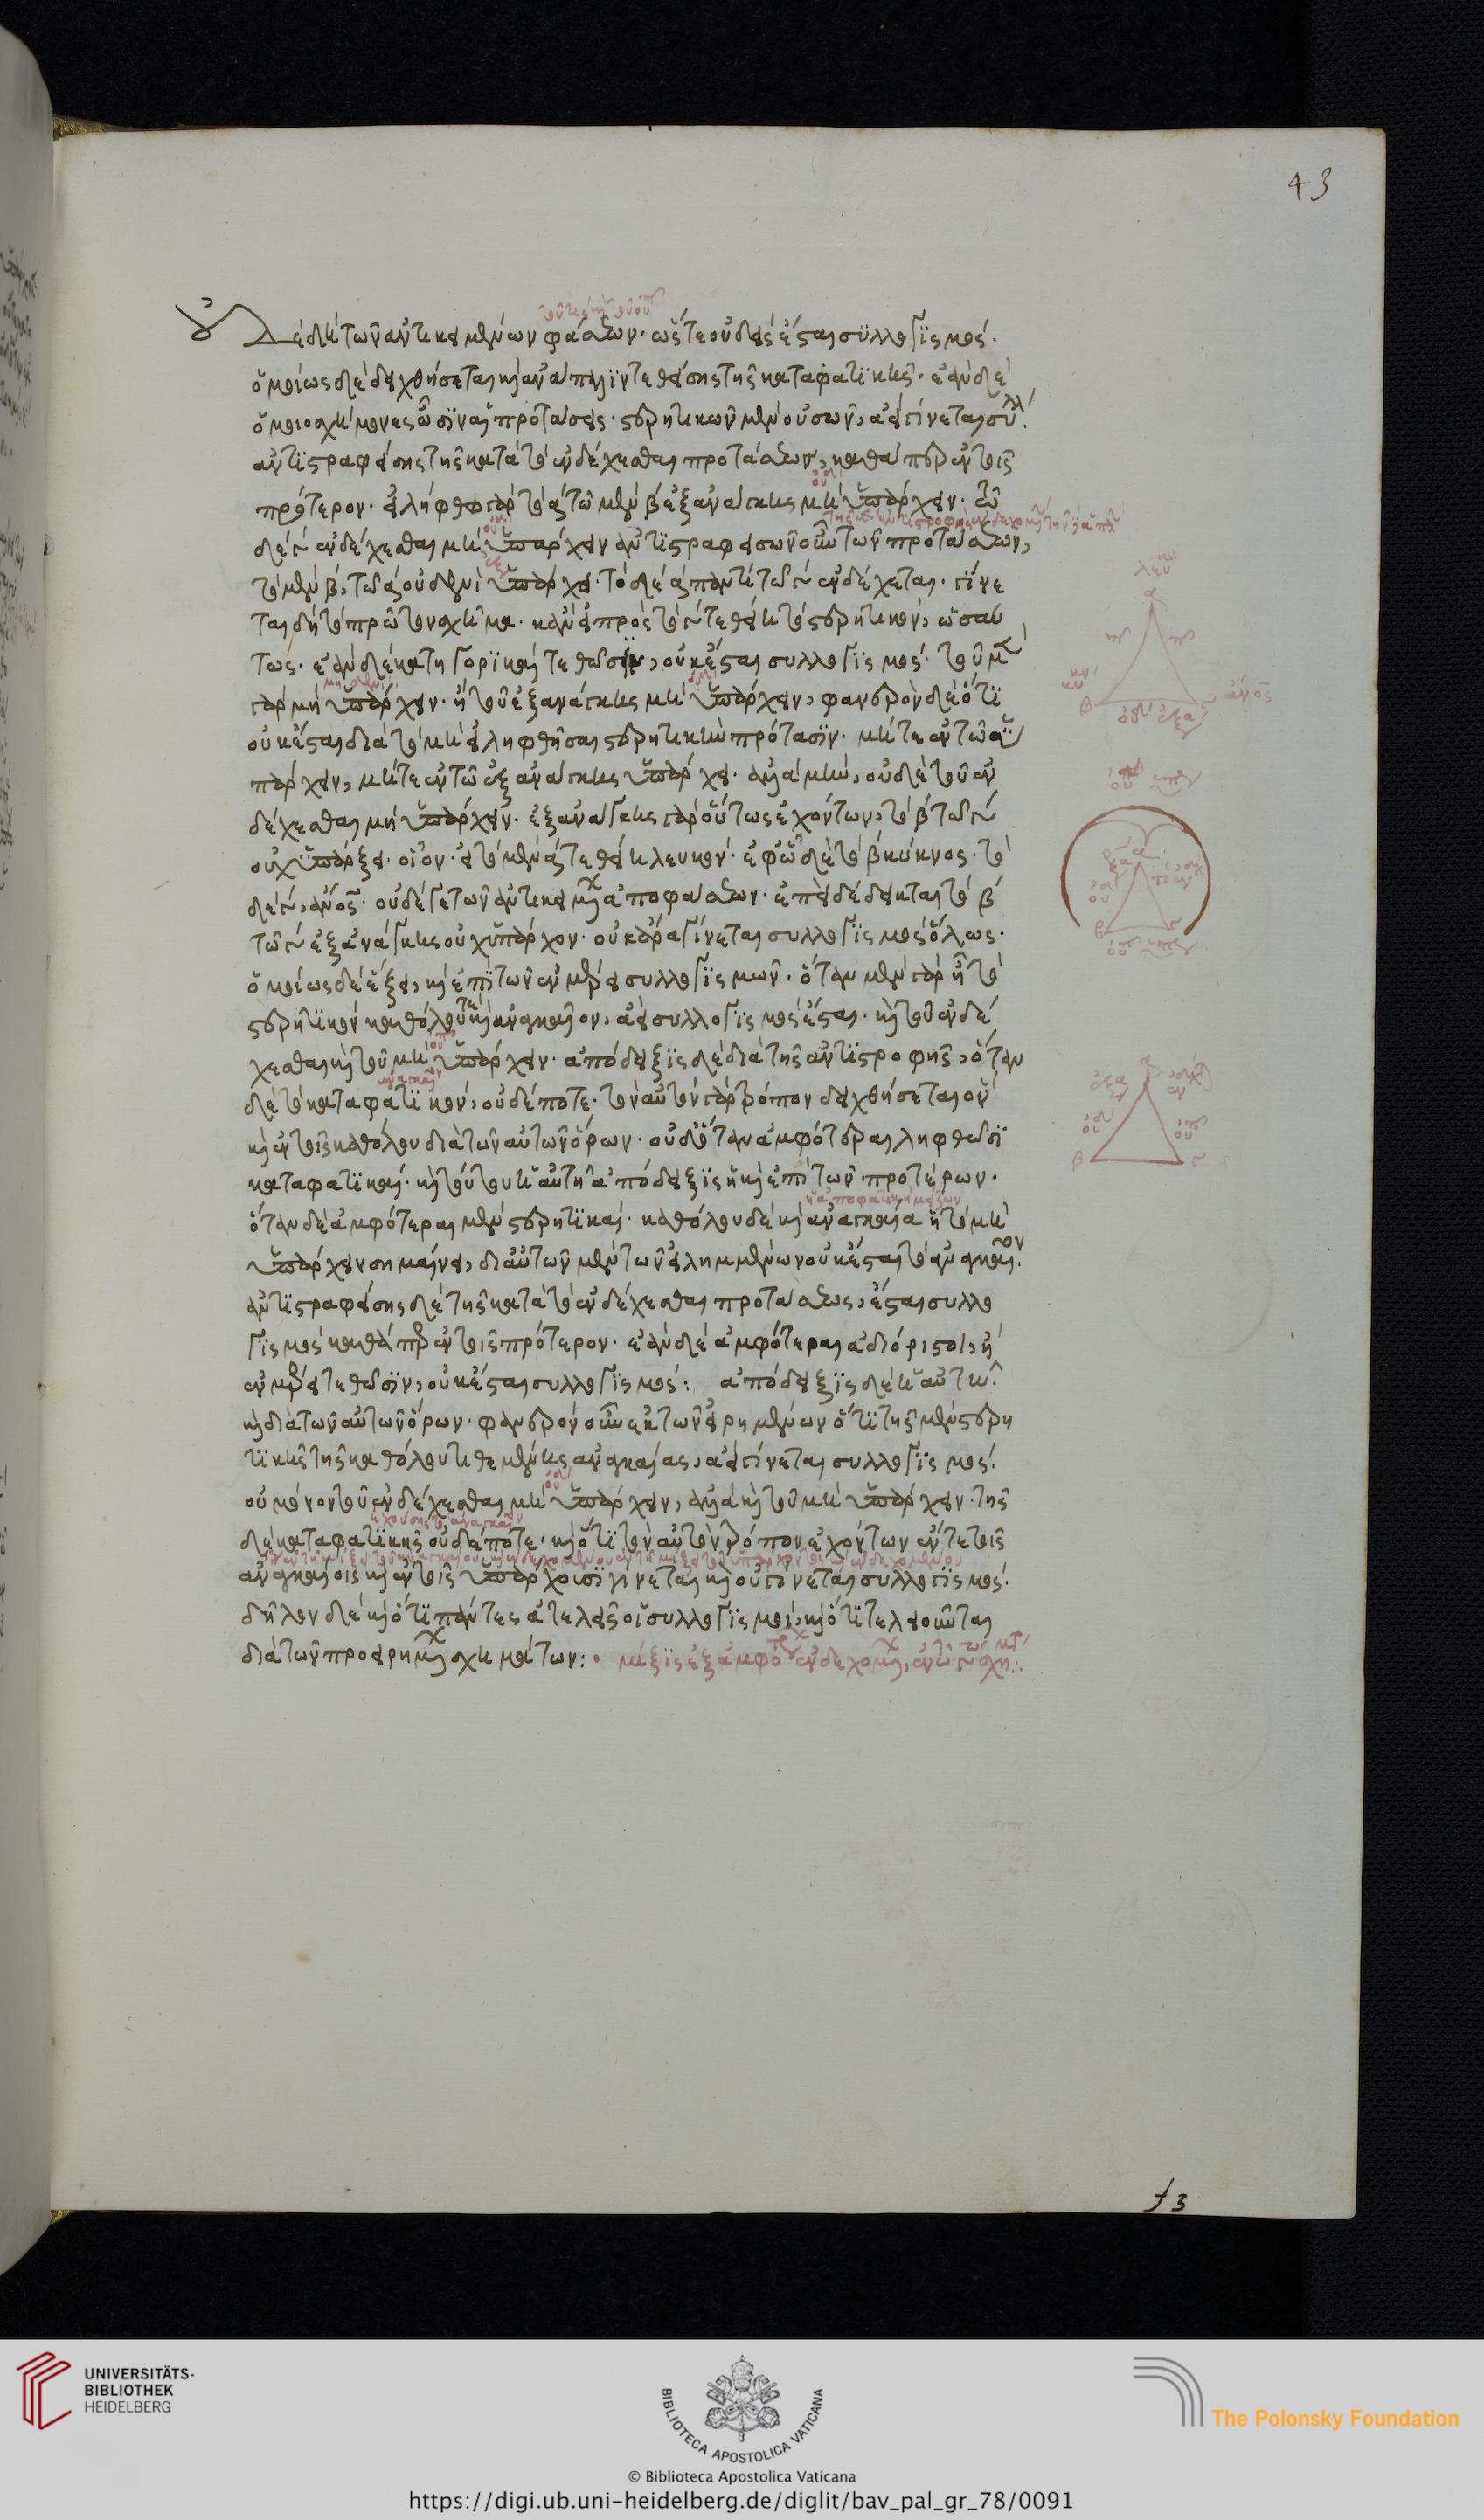 οὐδέ δὴ τῶν ἀντικειμένων φάσεων· ὥστε οὐδεὶς ἔσται συλλογισμός.
ὁμοίως δὲ δειχθήσεται κἀνάπαλιν τεθείσης τῆς καταφατικῆς· ἐὰν δὲ
ὁμοιοσχήμονες ὦσιν αἱ προτάσεις· στερητικῶν μὲν οὐσῶν, ἀεὶ γίνεται συλλ
ἀντιστραφείσης τῆς κατὰ τὸ ἐνδέχεσθαι προτάσεως, καθάπερ ἐν τοῖς
πρότερον· εἰλήφθω γὰρ τὸ α τῶ μὲν β ἐξ ἀνάγκης μὴ ὑπάρχειν· τῶ
δὲ γ ἐνδέχεσθαι μὴ ὑπάρχειν ἀντιστραφεισῶν οὖν τῶν προτάσεων,
τὸ μὲν β, τῶ α οὐδενὶ ὑπάρχει· τὸ δὲ α παντὶ τῶ γ ἐνδέχεται· γίνε
ται δὴ τὸ πρῶτον σχῆμα· κἂν εἰ πρὸς τὸ γ τεθείη τὸ στερητικόν, ὡσαύ
τως· ἐὰν δὲ κατηγορικαὶ τεθῶσιν, οὐκ ἔσται συλλογισμός· τοῦ μὲν
γὰρ μὴ ὑπάρχειν· ἢ τοῦ ἐξανάγκης μὴ ὑπάρχειν, φανερὸν δὲ ὅτι
οὐκ ἔσται διὰ τὸ μὴ εἰλῆφθαι στερητικὴν πρότασιν· μήτε ἐν τῶ ὑ
πάρχειν, μήτε ἐν τῶ ἐξ ἀνάγκης ὑπάρχει· ἀλλὰ μὴν, οὐδὲ τοῦ ἐν
δέχεσθαι μὴ ὑπάρχειν· ἐξανάγκης γὰρ οὕτως ἐχόντων, τὸ β τῶ γ
οὐχ ὑπάρξει· οἷον· εἰ τὸ μὲν α τεθείη λευκόν· ἐφ' ὧ δὲ τὸ β κύκνος· τὸ
δὲ γ, ἄνος· οὐδέ γε τῶν ἀντικειμένων ἀποφάσεων· ἐπεὶ δέδεικται τὸ β
τῶ γ ἐξ ἀνάγκης οὐχ ὑπάρχον· οὐκ ἄρα γίνεται συλλογισμὸς ὅλως·
ὁμοίως δὲ ἕξει, κἐπὶ τῶν ἐν μέρει συλλογισμῶν· ὅταν μὲν γὰρ ἦ τὸ
στερητικὸν καθόλου τε καὶ ἀναγκαῖον, ἀεὶ συλλογισμὸς ἔσται· καὶ τοῦ ἐνδέ
χεσθαι καὶ τοῦ μὴ ὑπάρχειν· ἀπόδειξις δὲ διὰ τῆς ἀντιστροφῆς, ὅταν
δὲ τὸ καταφατικόν, οὐδέποτε· τὸν αὐτὸν γὰρ τρόπον δειχθήσεται ὃν
κἐν τοῖς καθόλου διὰ τῶν αὐτῶν ὅρων· οὐδ' ὅταν ἀμφότεραι ληφθῶσι
καταφατικαί· καὶ τούτου ἡ αὐτὴ ἀπόδειξις ἣ κἐπὶ τῶν προτέρων·
ὅταν δὲ ἀμφότεραι μὲν στερητικαί· καθόλου δὲ καὶ ἀναγκαία ἡ τὸ μὴ
ὑπάρχειν σημαίνει, δι' αὐτῶν μὲν τῶν εἰλημμένων οὐκ ἔσται τὸ ἀναγκαῖον.
ἀντιστραφείσης δὲ τῆς κατὰ τὸ ἐνδέχεσθαι προτάσεως, ἔσται συλλο
γισμὸς καθάπερ ἐν τοῖς πρότερον· ἐὰν δὲ ἀμφότεραι ἀδιόριστοι, ἢ
ἐν μέρει τεθῶσιν, οὐκ ἔσται συλλογισμός: ἀπόδειξις δὲ ἡ αὐτὴ.
καὶ διὰ τῶν αὐτῶν ὅρων· φανερὸν οὖν ἐκ τῶν εἰρημένων ὅτι τῆς μὲν στερη
τικῆς τῆς καθόλου τιθεμένης ἀναγκαίας, ἀεὶ γίνεται συλλογισμός.
οὐ μόνον τοῦ ἐνδέχεσθαι μὴ ὑπάρχειν, ἀλλὰ καὶ τοῦ μὴ ὑπάρχειν· τῆς
δὲ καταφατικῆς οὐδέποτε· καὶ ὅτι τὸν αὐτὸν τρόπον ἐχόντων ἔν τε τοῖς
ἀναγκαίοις κἐν τοῖς ὑπάρχουσι γίνεται καὶ οὐ γίνεται συλλογισμός·
δῆλον δὲ καὶ ὅτι πάντες ἀτελεῖς οἱ συλλογισμοί, καὶ ὅτι τελειοῦνται
διὰ τῶν προειρημένων σχημάτων:
43
UNIVERSITÄTS-
BIBLIOTHEK
HEIDELBERG
BIBLIOTECA APOSTOLICA VATICANA
The Polonsky Foundation
© Biblioteca Apostolica Vaticana
https://digi.ub.uni-heidelberg.de/diglit/bav_pal_gr_78/0091